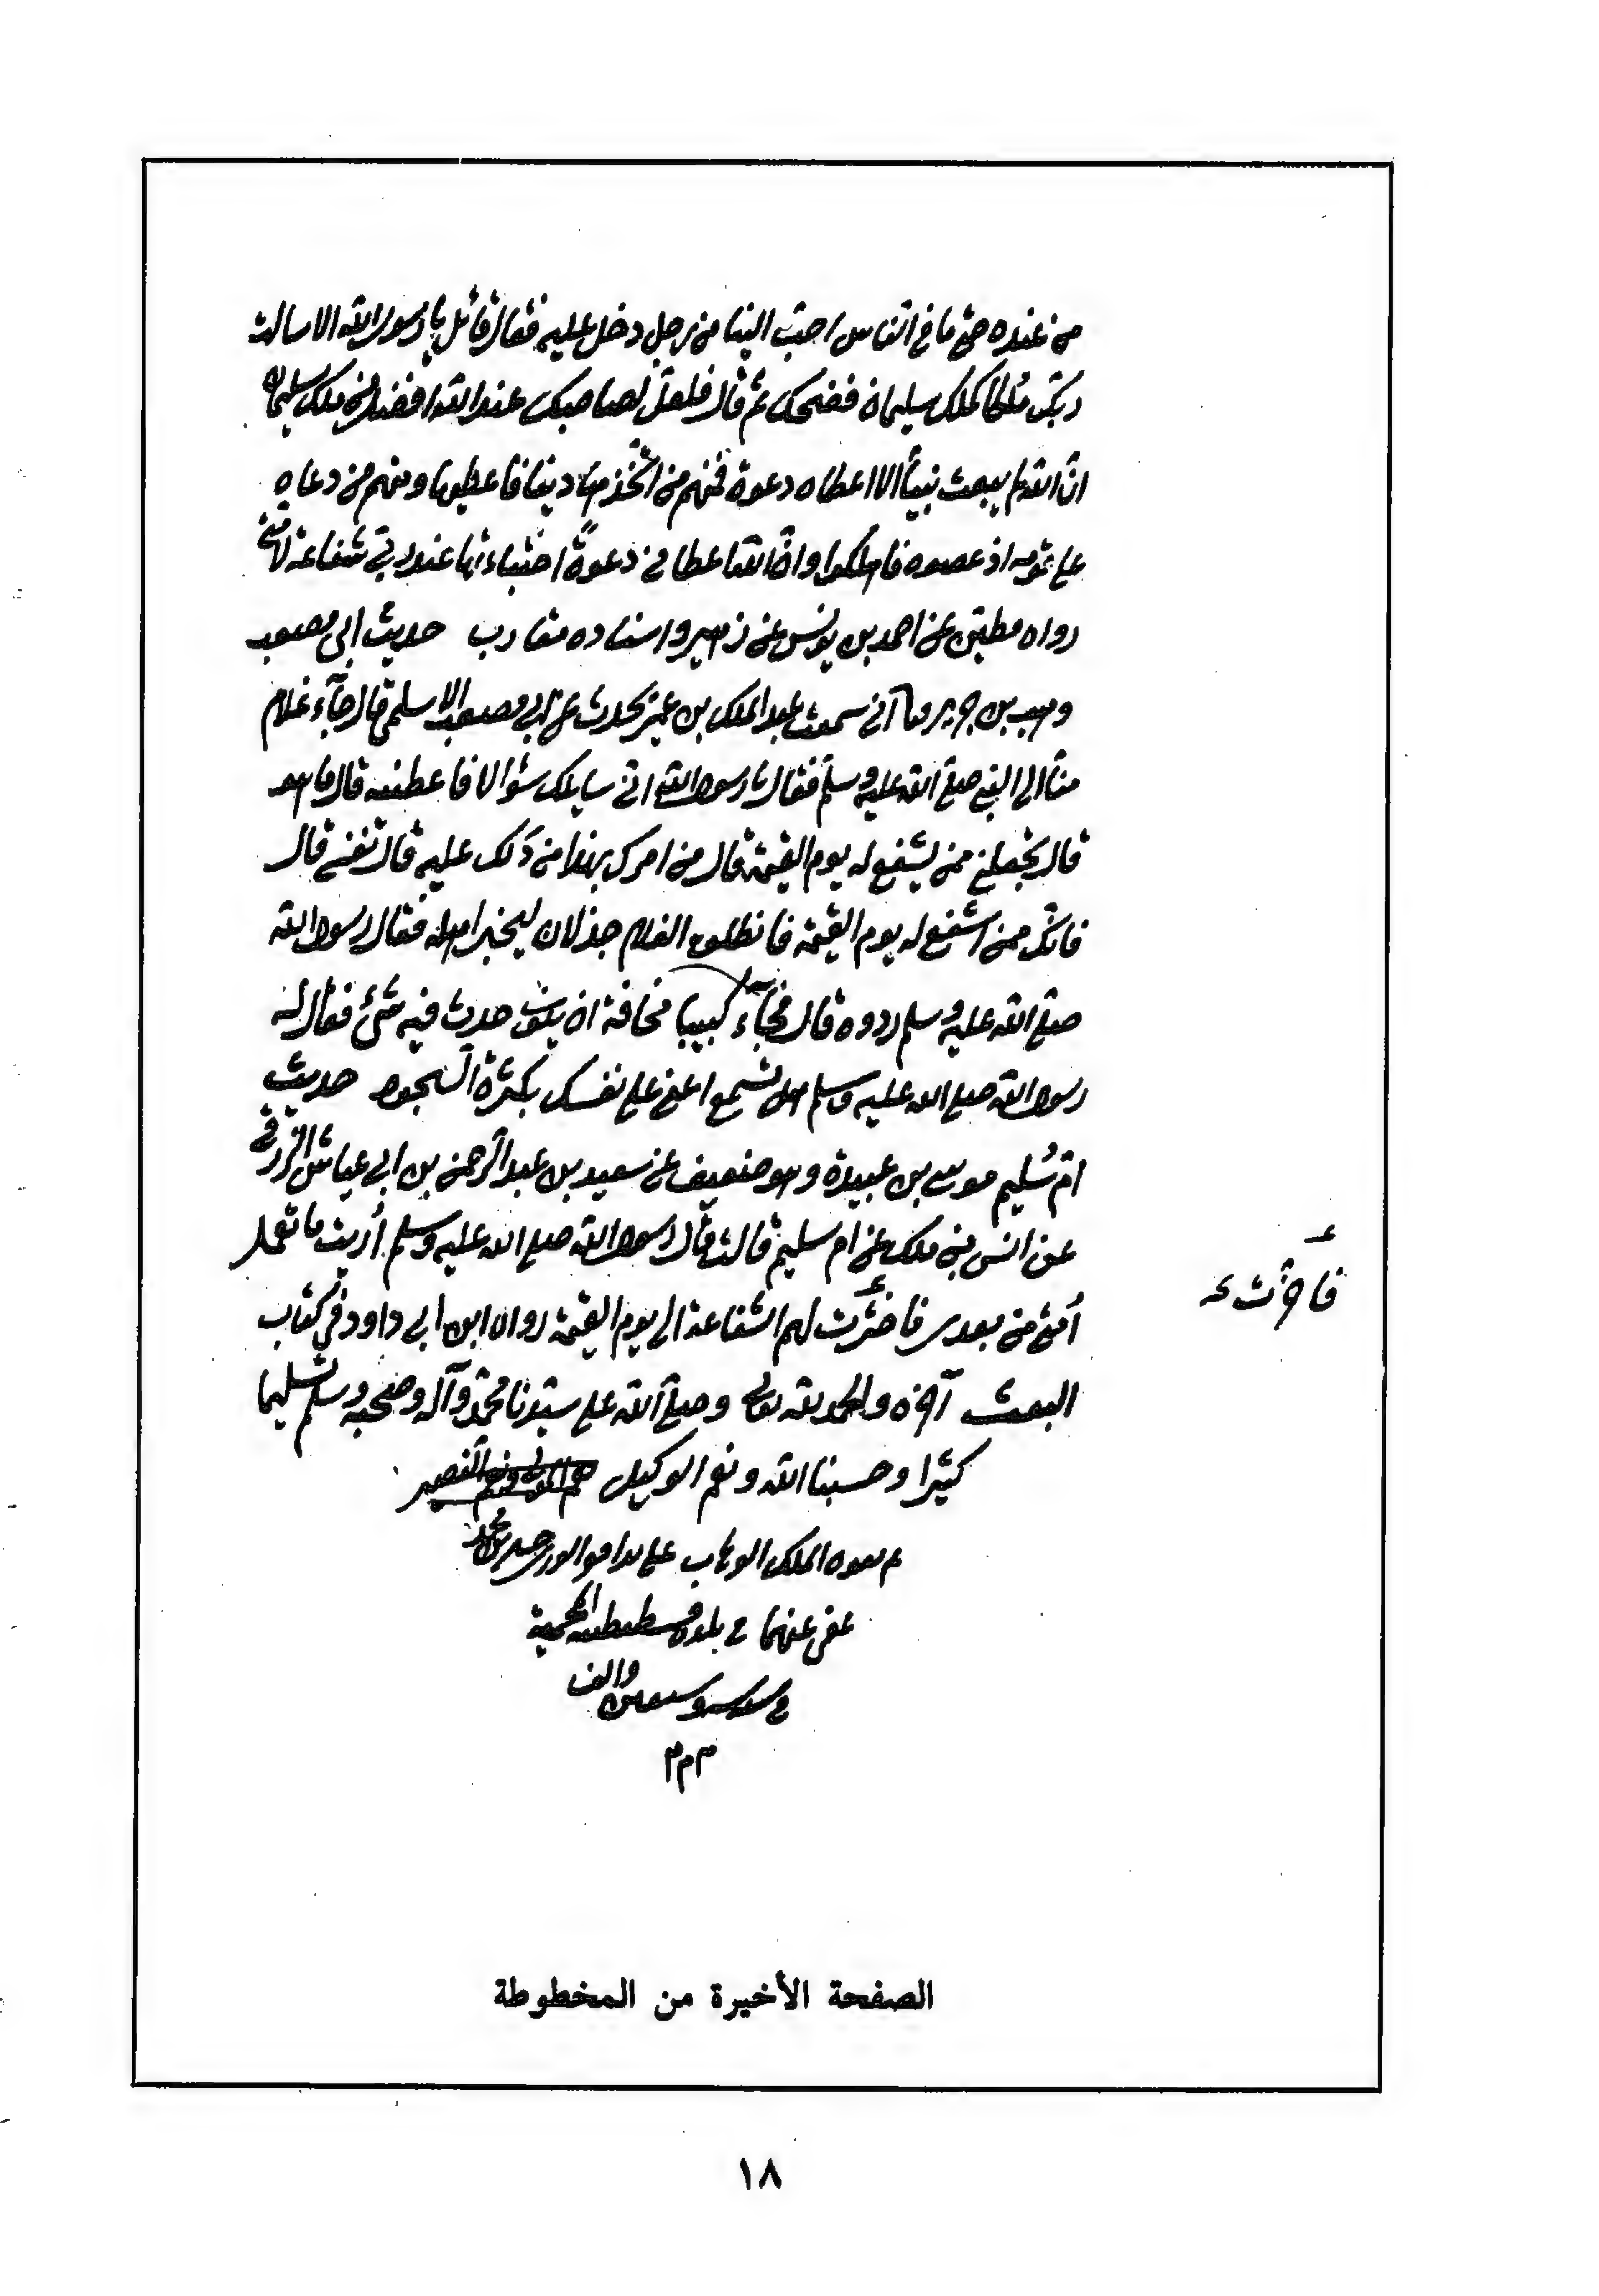 من عنده حتى ما في الناس احبّ الينا من رجل دخل عليه فقال قائل يا رسول الله الا سالت
ربّك ملكا كملك سليمان فضحك ثم قال فلعلّ لصاحبك عند الله افضل من ملك سليمان
انّ الله لم يبعث نبياً الا اعطاه دعوة فمنهم من اتّخذ بها دينا فاعطيها ومنهم من دعا به
على قومه اذ عصوه فاهلكوا وانّ الله اعطاني دعوةً اختباءتها عند ربي شفاعة لامتي
رواه مطيّن عن احمد بن يونس عن زهير واسناده مقارب حديث ابي مصعب
وهب بن جرير ابي سمعت عبد الملك بن عمير يحدث عن ابي مصعب الاسلمي قال جآء غلام
منّا الى النبي صلى الله عليه وسلم فقال يا رسول الله انّي سايلك سؤالا فاعطنيه قال ما هو
قال تجعلني ممن يشفع له يوم القيمة قال من امرك بهذا من دلك عليه قال نفسي قال
فانّك ممن اشفع له يوم القيمة فانطلق الغلام جذلان ليخبر اهله فقال رسول الله
صلى الله عليه وسلم ردوه قال فجآء كئيبا مخافة ان يكون حدث فيه شئ فقال له
رسول الله صلى الله عليه وسلم اعني على نفسك بكثرة السجود حديث
امّ سُليم موسى بن عبيدة وهو ضعيف عن سعيد بن عبد الرحمن بن ابي عياش الزرقي
عن انس بن ملك عن ام سليم قالت قال رسول الله صلى الله عليه وسلم أُريت ما تعمل
أُمتي من بعدي فاخترت لهم الشفاعة الى يوم القيمة رواه ابن ابي داود في كتاب
فاخرت
البعث آخره والحمد لله تعالى وصلى الله على سيّدنا محمّد وآله وصحبه وسلم تسليما
كثيرا وحسبنا الله ونعم الوكيل نعم المولى ونعم النصير
الملك الوهاب على يد
عفى عنهما في بلدة قسطنطينيه المحمية
وسبعين والف
م م م
الصفحة الأخيرة من المخطوطة
١٨